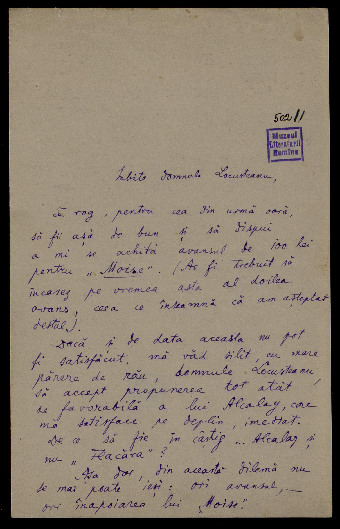 502/1
Muzeul
Literaturii
Romîne
Iubite domnule Locusteanu,
Te rog, pentru cea din urmă oară,
să fii aşà de bun şi să dispui
a mi se achità avansul de 100 lei
pentru „Moise". (Ar fi trebuit să
încasez pe vremea asta al doilea
avans, ceea ce înseamnă că am aşteptat
destul).
Dacă şi de data aceasta nu pot
fi satisfăcut, mă văd silit, cu mare
părere de rău, domnule Locusteanu,
să accept propunerea tot atât
de favorabilă a lui Alcalay, care
mă satisface pe deplin, imediat.
De ce să fie în câştig... Alcalay şi
nu „Flacăra"?
Aşa dar, din această dilemă nu
se mai poate ieşi: ori avansul,
ori înapoiarea lui „Moise".